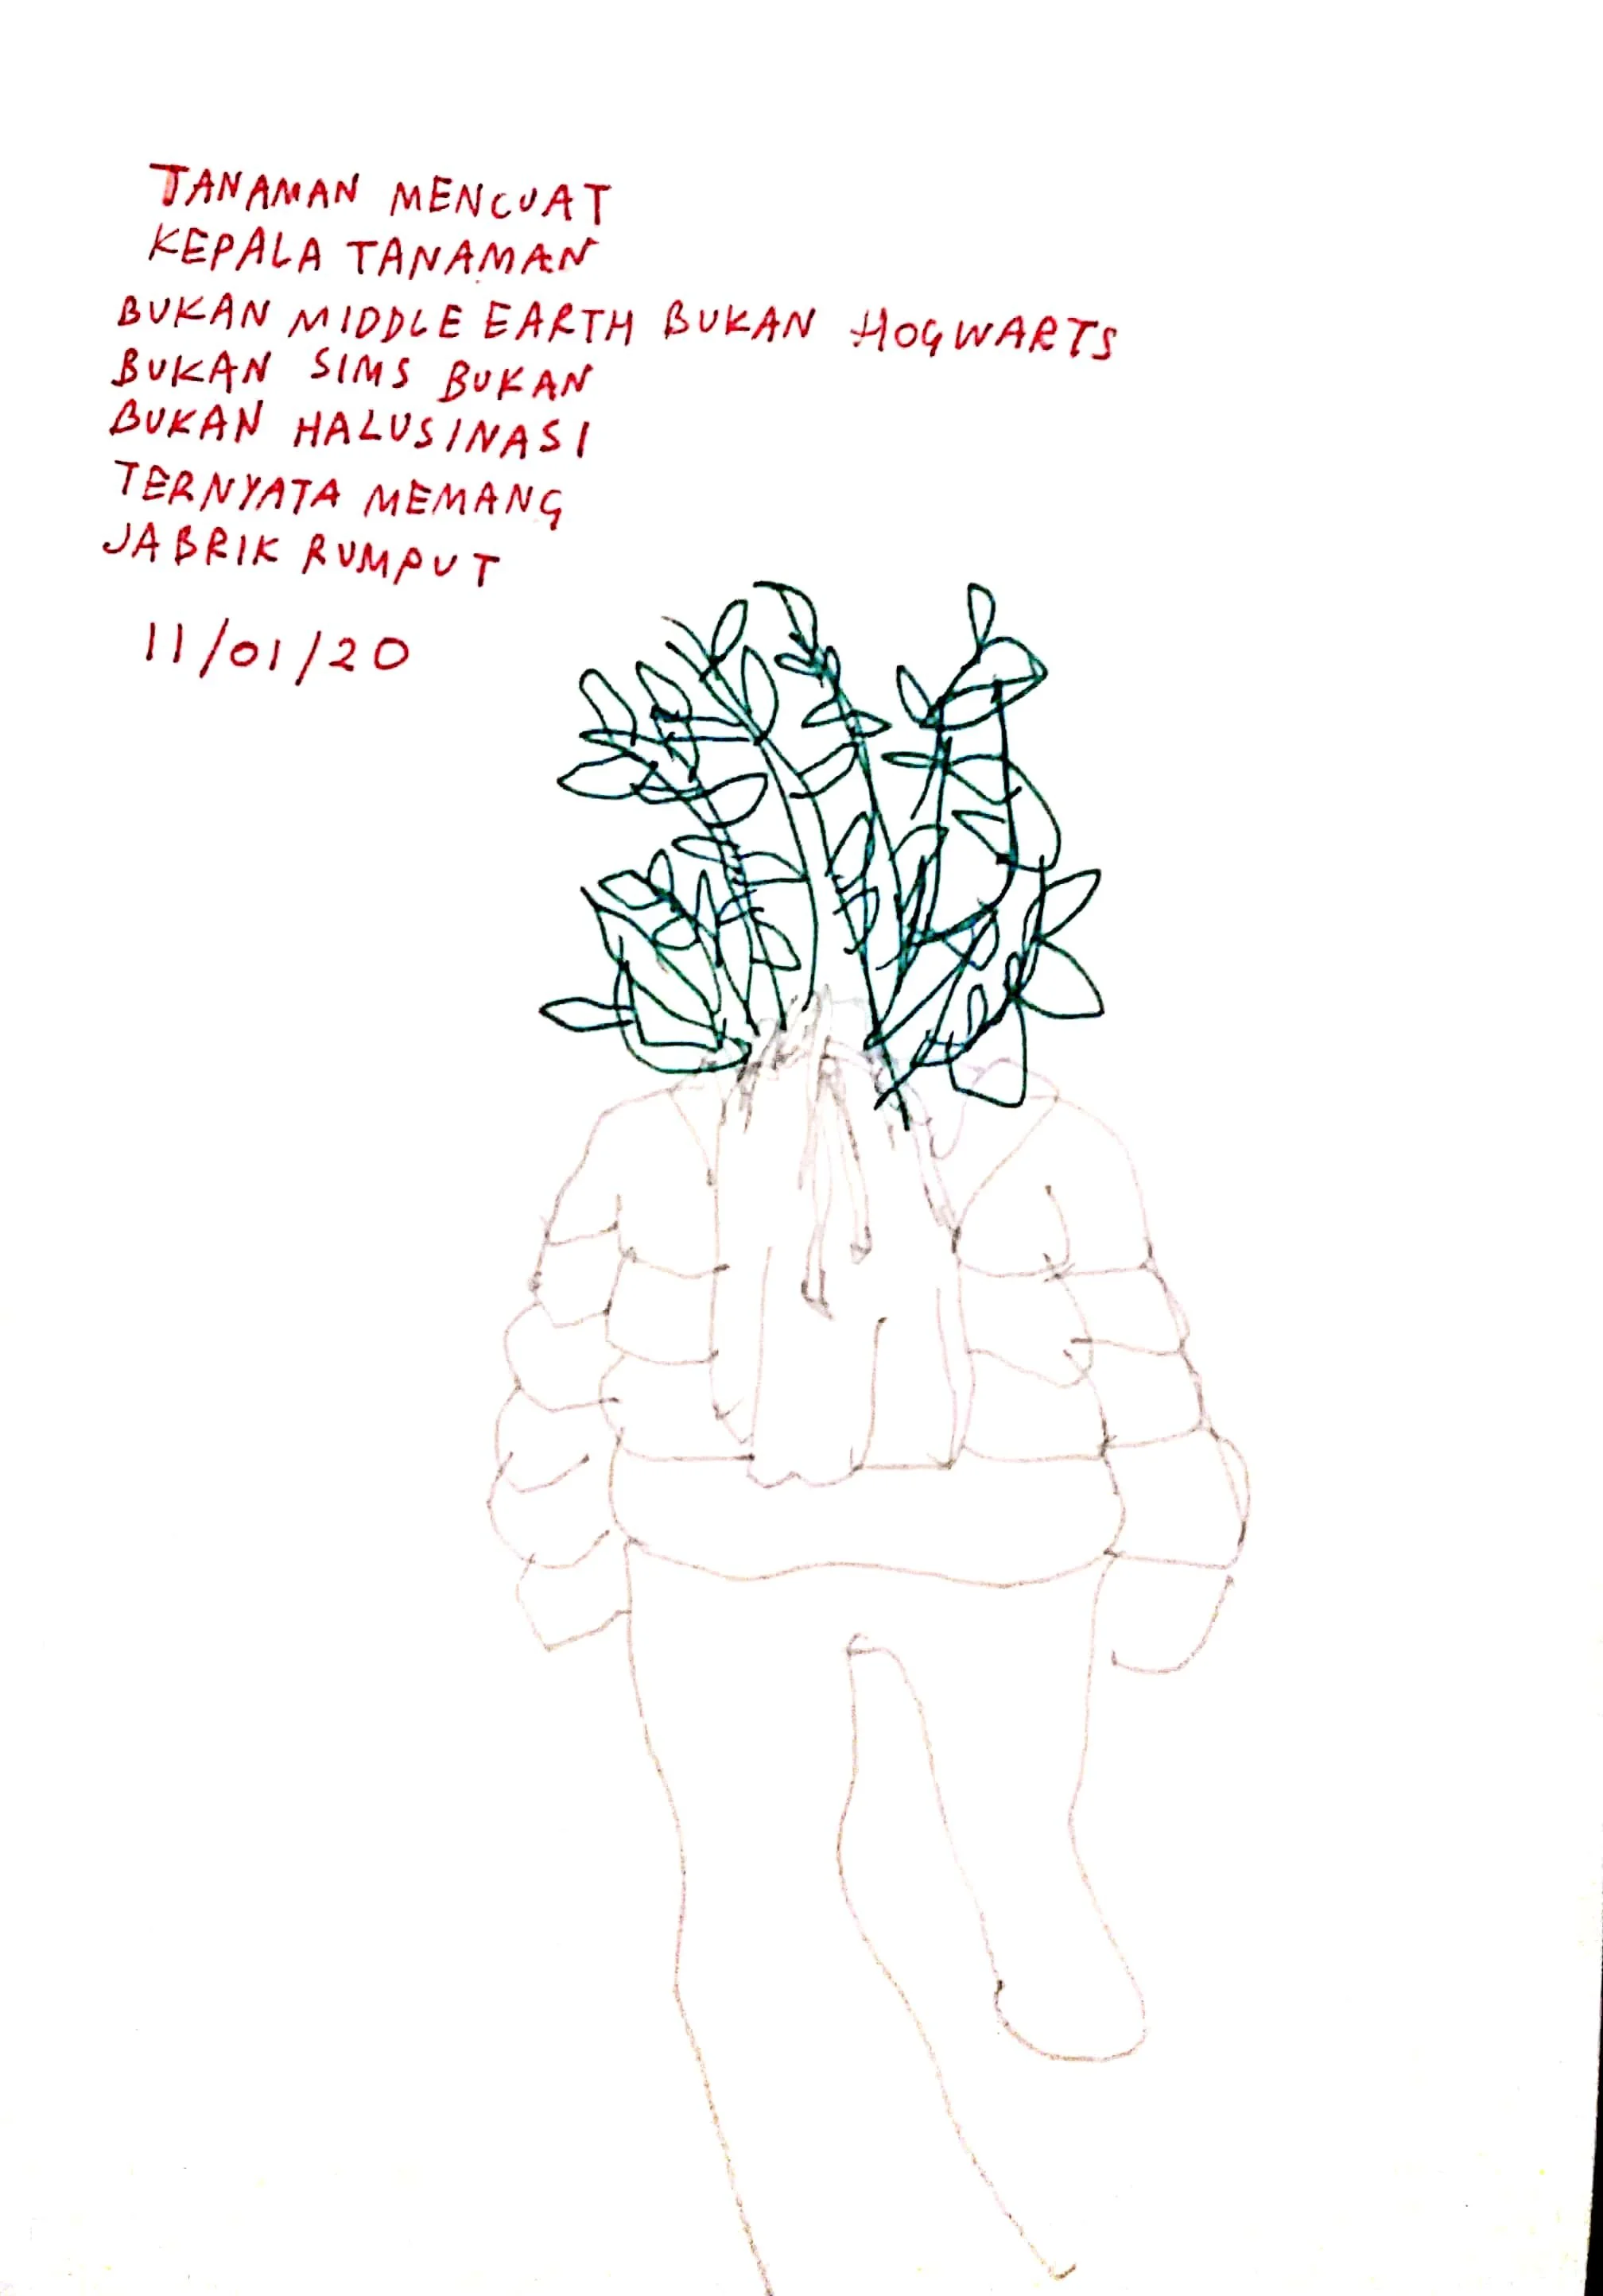 TANAMAN MENCUAT
KEPALA TANAMAN
BUKAN MIDDLE EARTH BUKAN HOGWARTS
BUKAN SIMS BUKAN
BUKAN HALUSINASI
TERNYATA MEMANG
JABRIK RUMPUT
11/01/20